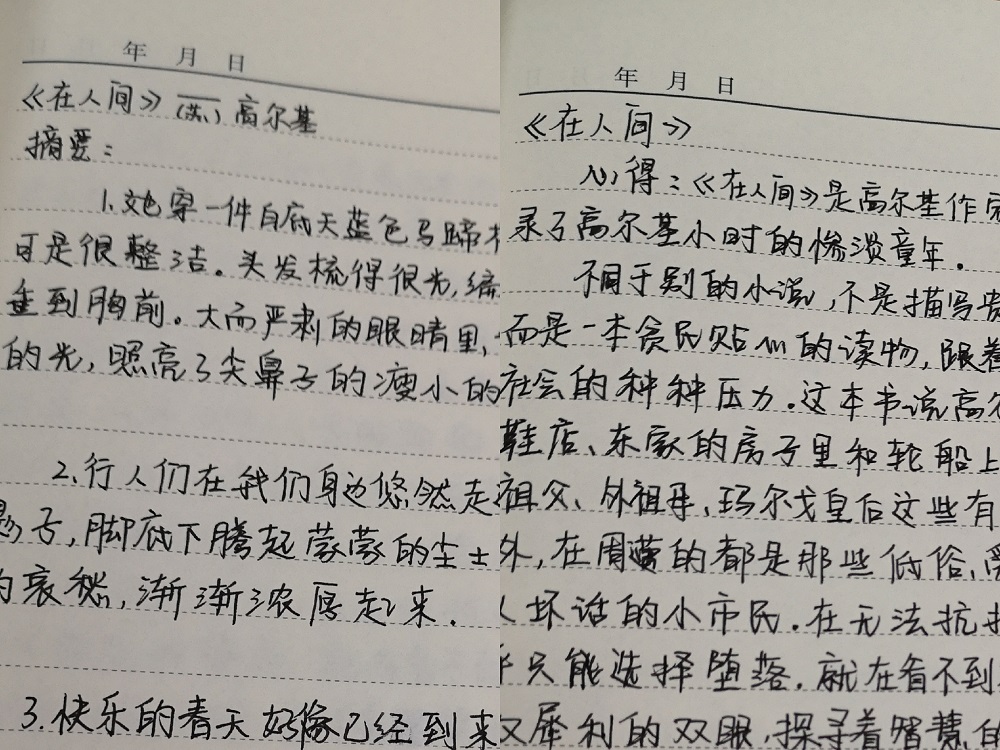 年 月 日
《在人间》 (苏) 高尔基
摘要：
1. 她穿一件白底天蓝色马蹄
可是很整洁。头发梳得很光，编
垂到胸前。大而严肃的眼睛里，
的光，照亮了尖鼻子的瘦小的
2. 行人们在我们身边悠然走
影子，脚底下腾起蒙蒙的尘土
的哀愁，渐渐浓厚起来．
3. 快乐的春天好像已经到来
年 月 日
《在人间》
心得：《在人间》是高尔基作
录了高尔基小时的惨淡童年．
不同于别的小说，不是描写贵
而是一本贫民贴心的读物，跟着
社会的种种压力．这本书说高尔
鞋店、东家的房子里和轮船上
祖父、外祖母、玛尔戈皇后这些有
外，在周遭的都是那些低俗、
人坏话的小市民．在无法抗
乎只能选择堕落．就在看不到
双犀利的双眼，探寻着智慧的